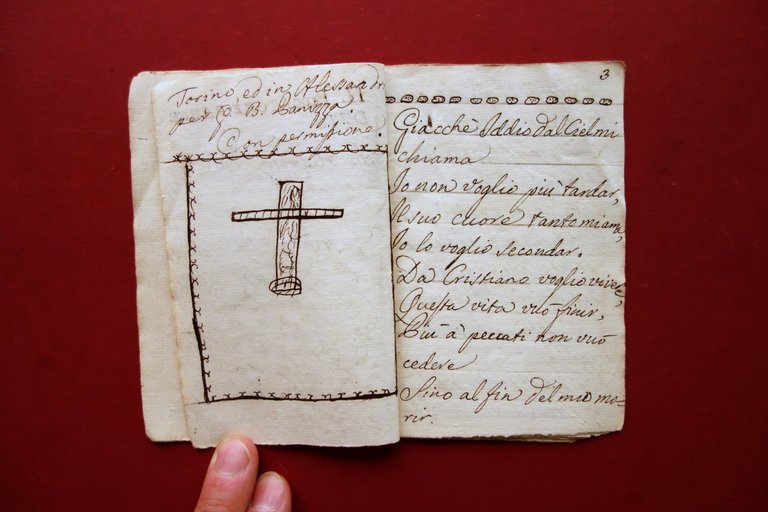 Torino, ed in Alessandr
per G. B. Panizza.
Con permissione.
3
Giacchè Iddio dal Ciel mi
chiama
Io non voglio più tardar,
Il suo cuore tanto mi ama,
Io lo voglio secondar.
Da Cristiano voglio vivere,
Questa vita vuò finir,
Più à peccati non vuò
cedere
Sino al fin del mio mo=
rir.